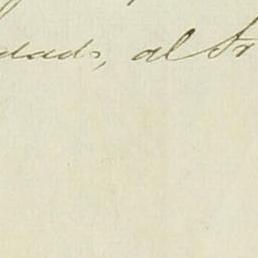 dad, al Sr